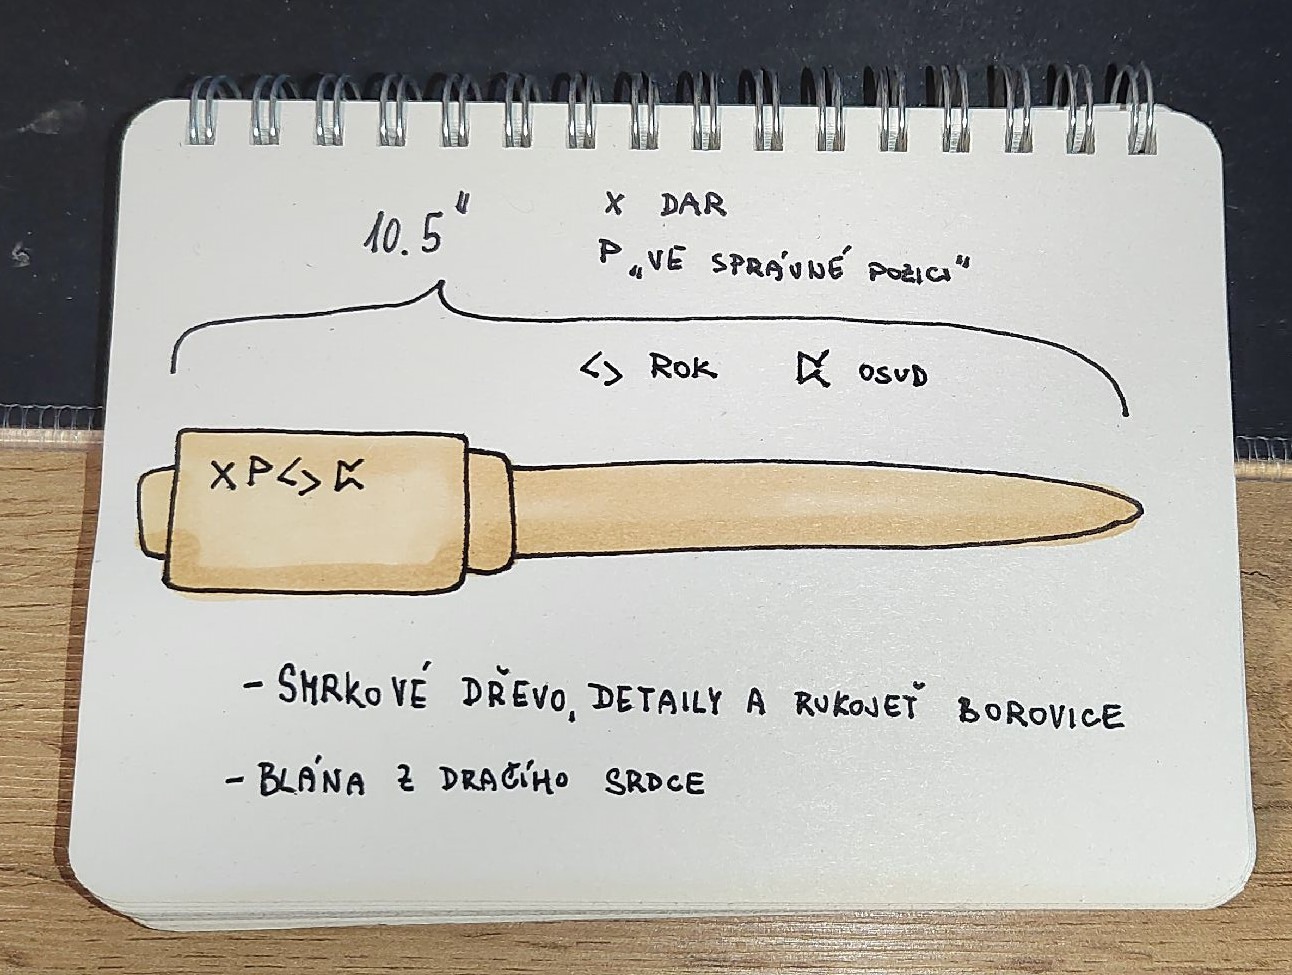 10.5"
X DAR
P „VE SPRÁVNÉ POZICI"
<> ROK ᛈ OSUD
X P <> ᛈ
- SMRKOVÉ DŘEVO, DETAILY A RUKOJEŤ BOROVICE
- BLÁNA Z DRAČÍHO SRDCE